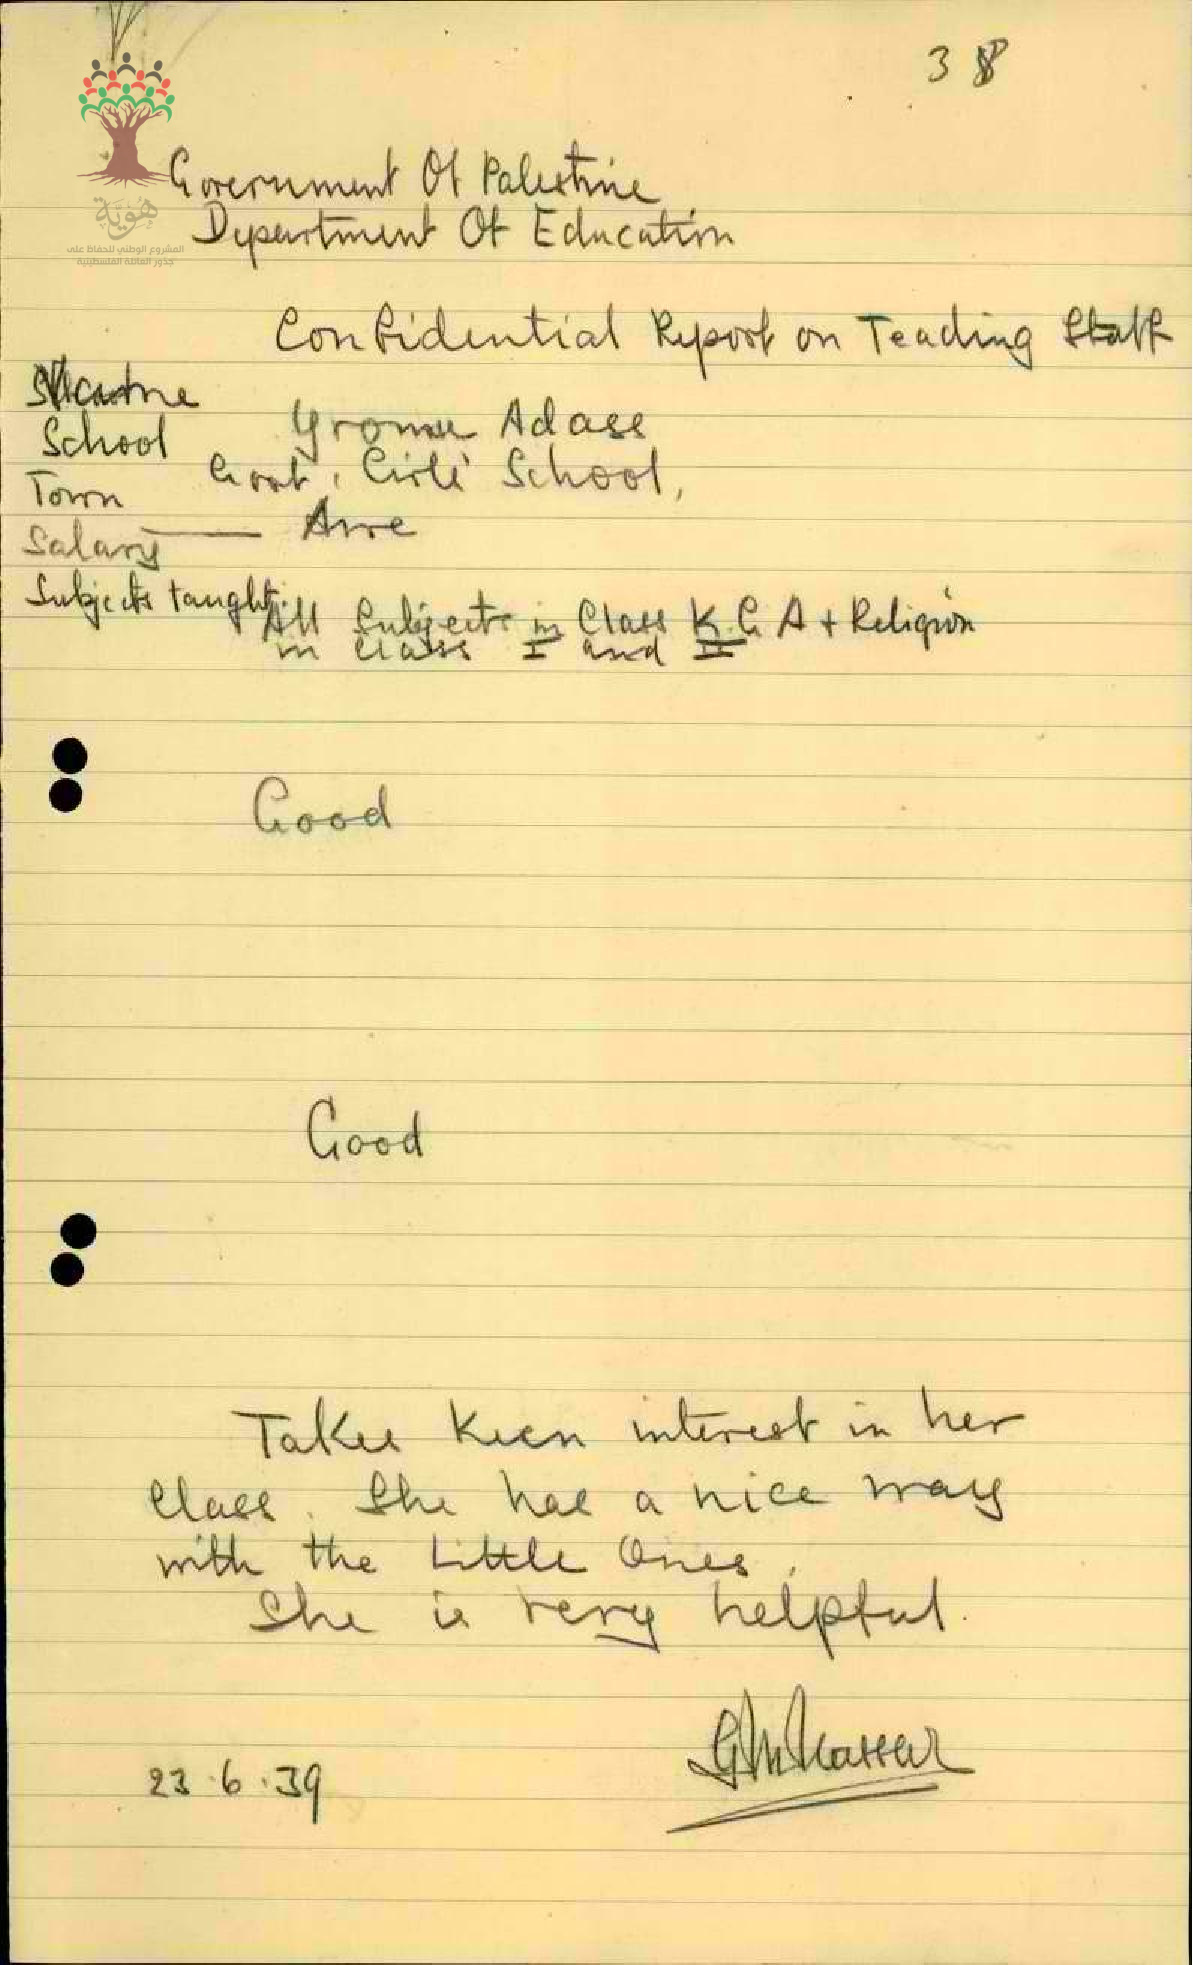 38
هُوِيَّة
المشروع الوطني للحفاظ على
جذور العائلة الفلسطينية
Government Of Palestine
Department Of Education
Confidential Report on Teaching Staff
Name
School Adass
Town Govt. Girls' School,
Salary — Acre
Subjects taught: All Subjects in Class K.G A + Religion
in class I and II
Good
Good
Takes Keen interest in her
Class. She has a nice way
with the Little Ones.
She is very helpful.
23.6.39